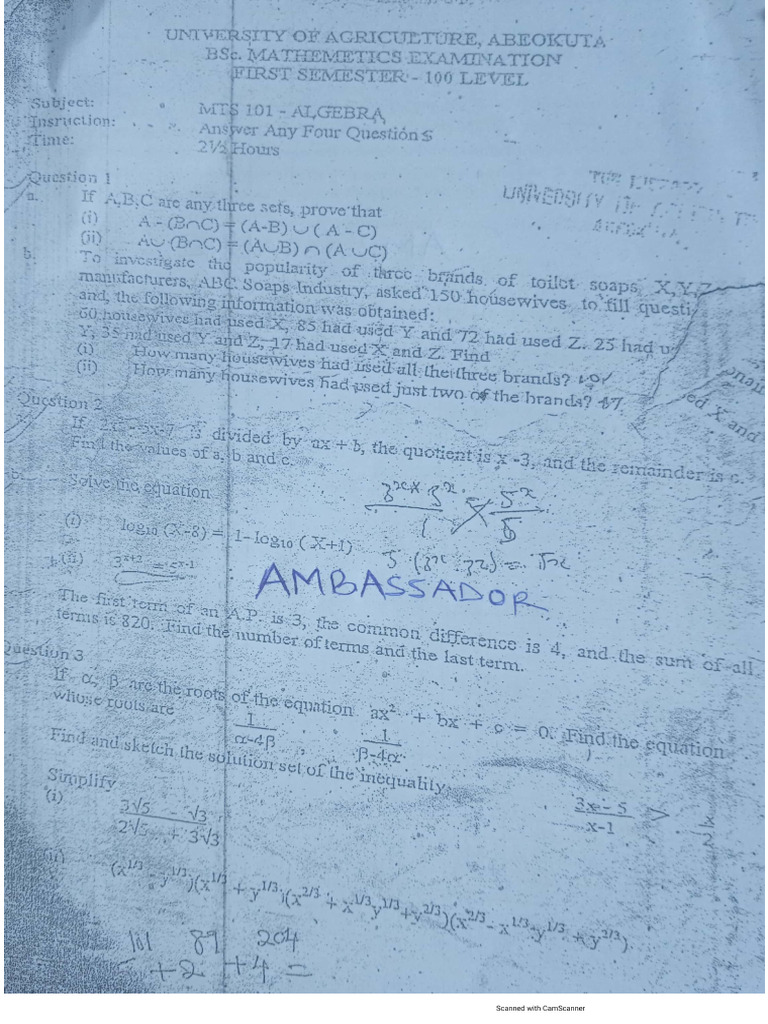 UNIVERSITY OF AGRICULTURE, ABEOKUTA
BSc. MATHEMETICS EXAMINATION
FIRST SEMESTER - 100 LEVEL
Subject: MTS 101 - ALGEBRA
Insruction: Answer Any Four Questions
Time: 2½ Hours
Question 1
a. If A,B,C are any three sets, prove that
(i) A - (B∩C) = (A-B) ∪ (A - C)
(ii) A∪ (B∩C) = (A∪B) ∩ (A ∪C)
b. To investigate the popularity of three brands of toilet soaps, X,Y,Z
manufacturers, ABC Soaps Industry, asked 150 housewives to fill questi
and, the following information was obtained:
60 housewives had used X, 85 had used Y and 72 had used Z. 25 had u
ed X and
Y, 35 had used Y and Z, 17 had used X and Z. Find
(i) How many housewives had used all the three brands?
(ii) How many housewives had used just two of the brands?
Question 2
If divided by ax + b, the quotient is x -3, and the remainder is c.
Find the values of a, b and c.
Solve the equation
(i) log₁₀ (X-8) = 1- log₁₀ ( X+1)
(ii) 3ˣ⁺² = 5ˣ⁻¹
AMBASSADOR
The first term of an A.P. is 3, the common difference is 4, and the sum of all
terms is 820. Find the number of terms and the last term.
Question 3
If α, β are the roots of the equation ax² + bx + c = 0. Find the equation
whose roots are 1/(α-4β) , 1/(β-4α)
Find and sketch the solution set of the inequality (3x - 5)/(x-1) >
Simplify
(i) (3√5 - √3)/(2√5 + 3√3)
(ii) (x^1/3 - y^1/3)(x^1/3 + y^1/3)(x^2/3 + x^1/3y^1/3+y^2/3)(x^2/3 - x^1/3y^1/3 + y^2/3)
101 89 204
+2 +4 =
Scanned with CamScanner